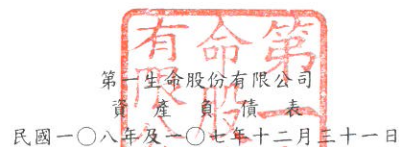 第一生命股份有限公司
資產負債表
民國一〇八年及一〇七年十二月三十一日